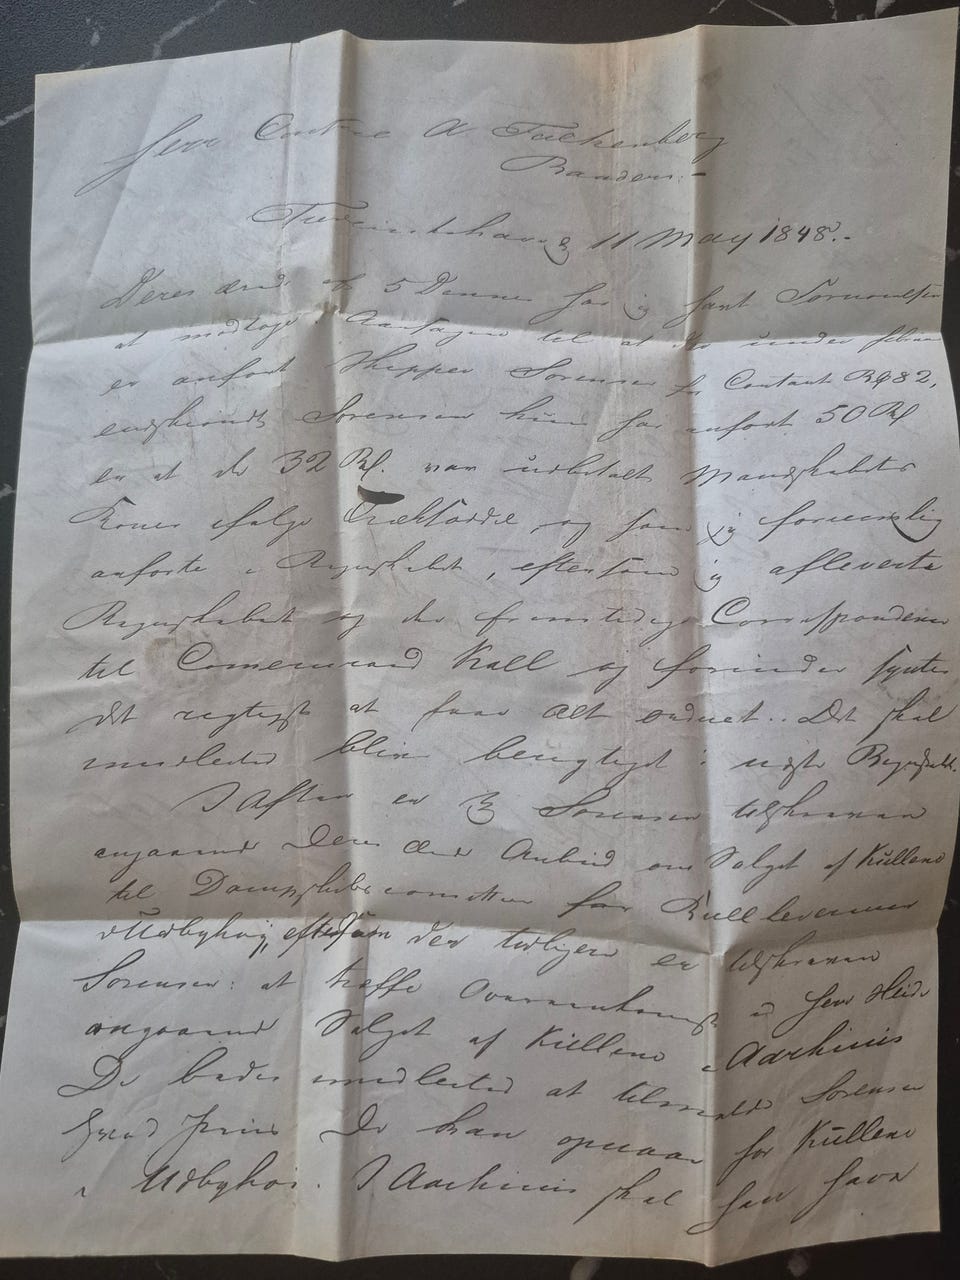 Herr A Falkenberg
Randers. -
Frederikshavn d 11 May 1848. -
Deres ærede af 5 Dennes har jeg havt Fornøielsen
at modtage Aarsagen til at der under
er anført Skipper Sørensen for Contant Rbd 82,
endskiøndt Sørensen kun har anført 50 Rbd
er at de 32 Rbd. var udbetalt Mandskabets
Koner ifølge Træksæddel og som jeg
anførte i Regnskabet, eftersom jeg afleverte
Regnskabet og den Correspondence
til Kall og forinden syntes
det rigtigst at faae alt ordnet. Det skal
imidlertid blive i næste Regnskab.
I Aften er Sørensen tilskreven
angaaende Deres ærede Anbud om Salget af Kullene
til Dampskibs for Kull
i Udbyhøi, eftersom der tidligere er tilskreven
Sørensen: at træffe Overeenkomst Herr
angaaende Salget af Kullene i Aarhuus
De bedes imidlertid at tilmelde Sørensen
hvad Priis De kan opnaae for Kullene
i Udbyhøi. I Aarhuus skal han have